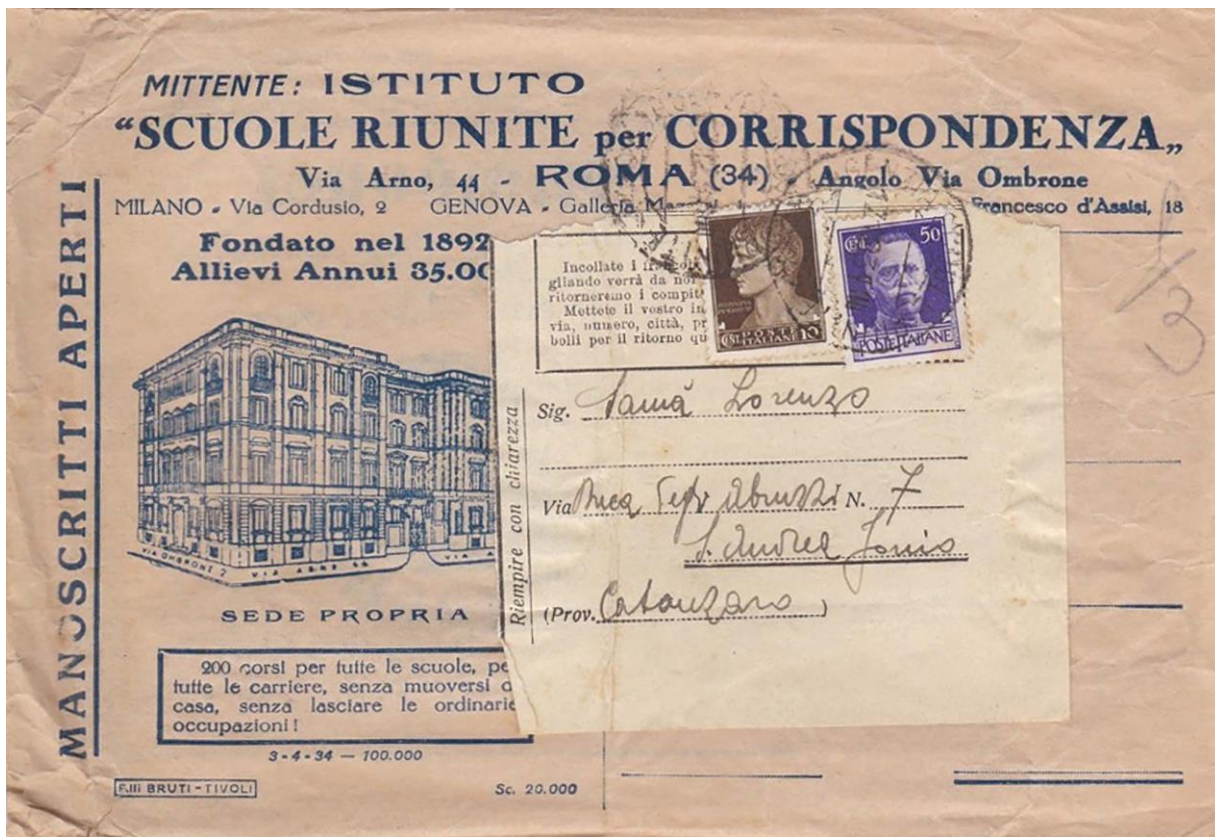 MITTENTE: ISTITUTO
“SCUOLE RIUNITE per CORRISPONDENZA„
Via Arno, 44 - ROMA (34) - Angolo Via Ombrone
MILANO - Via Cordusio, 2 GENOVA - Galleria Francesco d'Assisi, 18
MANOSCRITTI APERTI
Fondato nel 1892
Allievi Annui 35.00
VIA OMBRONE 2
VIA ARNO 44
VIA A
SEDE PROPRIA
200 corsi per tutte le scuole, pe
tutte le carriere, senza muoversi d
casa, senza lasciare le ordinarie
occupazioni!
3-4-34 — 100.000
F.lli BRUTI - TIVOLI
Sc. 20.000
Incollate i
gliando verrà da noi
ritorneremo i compit
Mettete il vostro in
via, numero, città, pr
bolli per il ritorno qu
POSTE
ITALIANE
CENT 10
CENT. 50
POSTE ITALIANE
Riempire con chiarezza
Sig. Samà Lorenzo
Via Duca Abruzzi N. 7
S. Andrea Jonio
(Prov. Catanzaro)
1/3